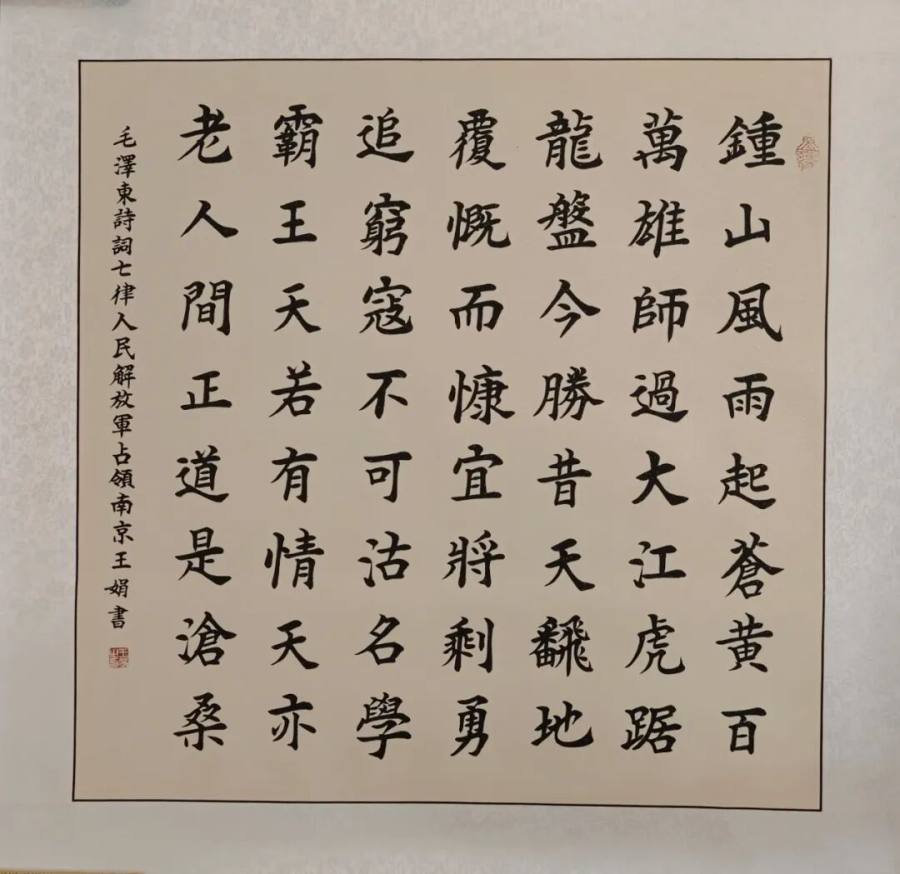 鍾山風雨起蒼黃百
萬雄師過大江虎踞
龍盤今勝昔天飜地
覆慨而慷宜將剩勇
追窮寇不可沽名學
霸王天若有情天亦
老人間正道是滄桑
毛澤東詩詞七律人民解放軍占領南京王娟書